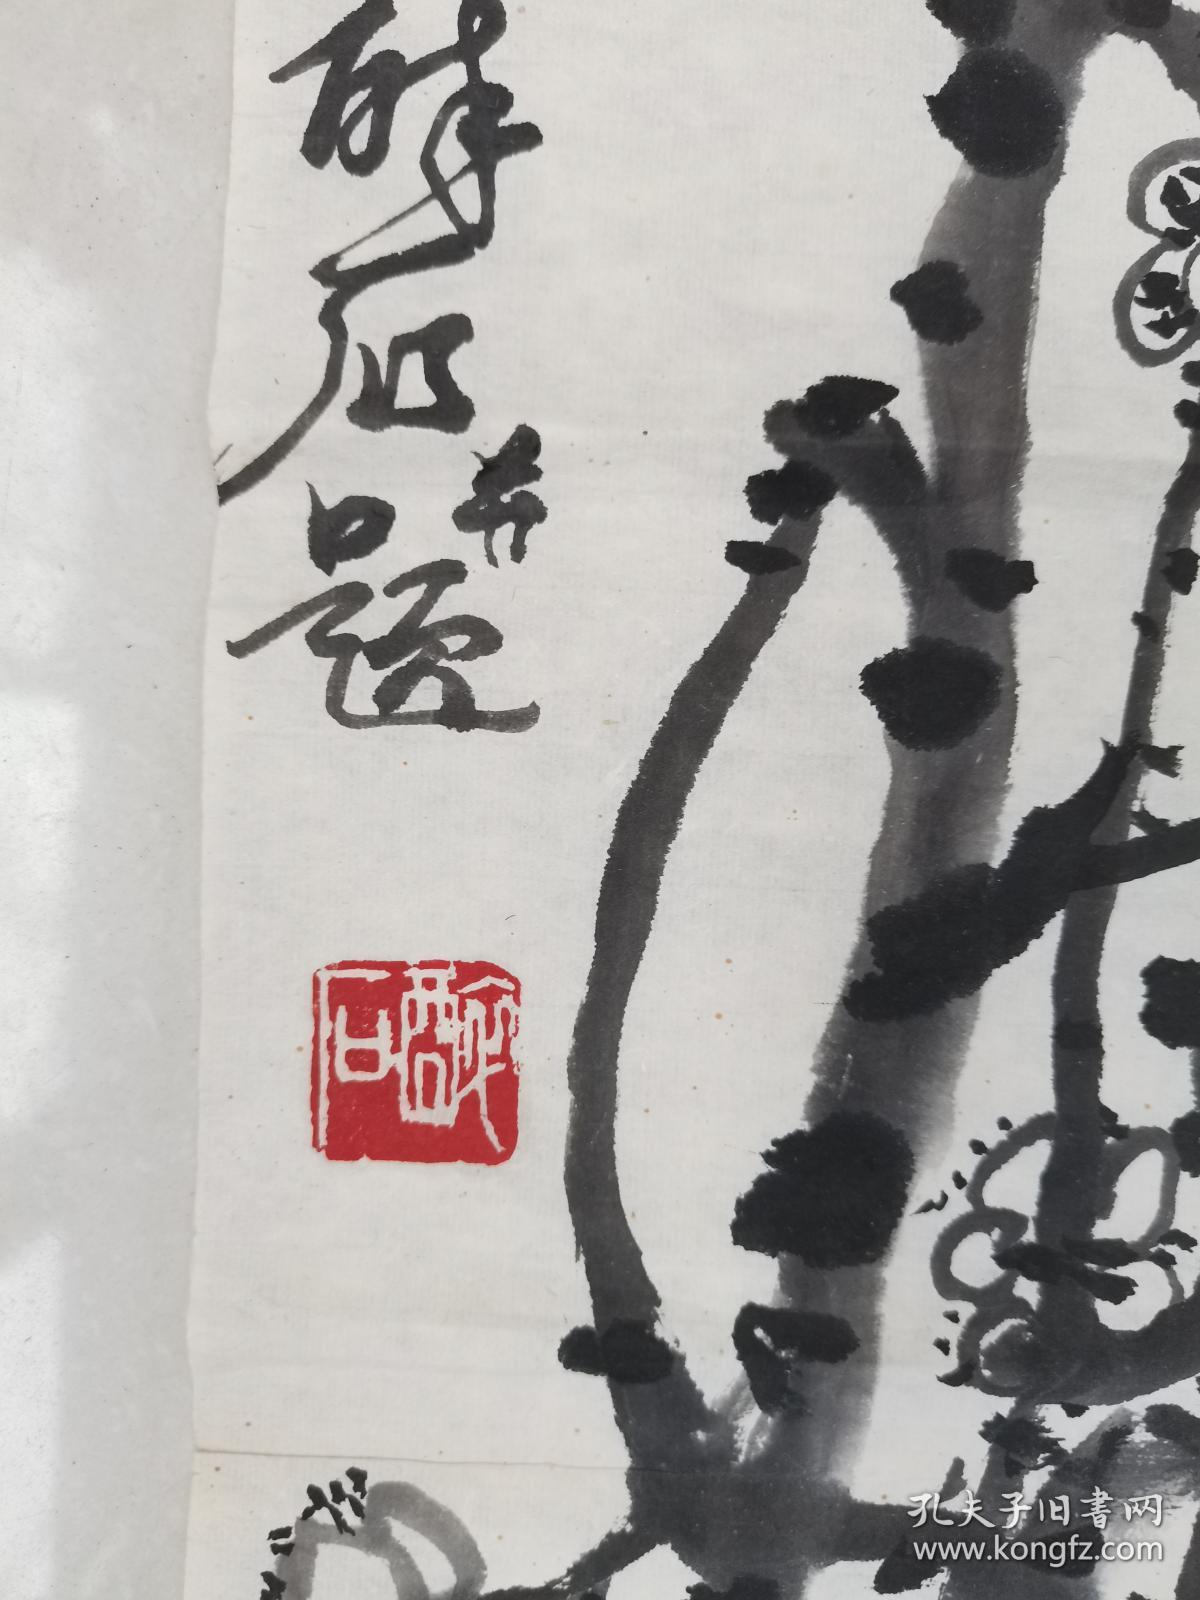 醉石并題
醉石
孔夫子旧書网
www.kongfz.com